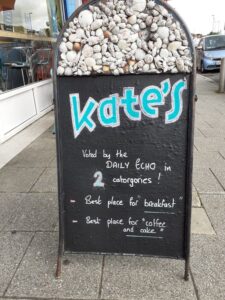 Kate's
Voted by the
DAILY ECHO in
2 catorgories !
- Best place for "breakfast"
- Best place for "coffee
and cake"